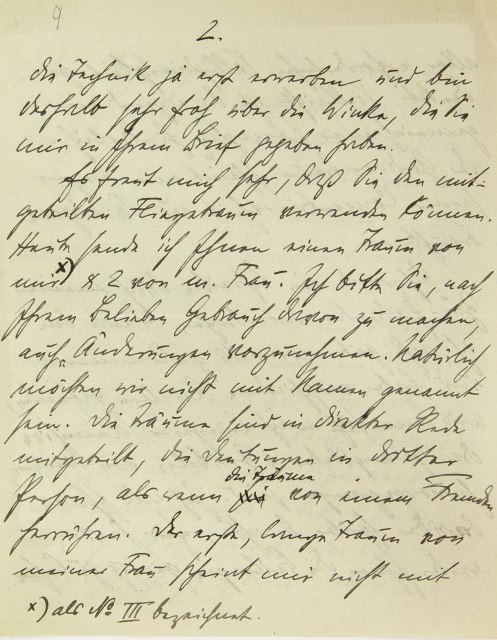 9
2.
die Technik ja erst erwerben und bin
deshalb sehr froh über die Winke, die Sie
mir in Ihrem Brief gegeben haben.
Es freut mich sehr, daß Sie den mit-
geteilten Fliegetraum verwenden können.
Heute sende ich Ihnen einen Traum von
mir x) & 2 von m. Frau. Ich bitte Sie, nach
Ihrem Belieben Gebrauch davon zu machen,
auch Änderungen vorzunehmen. Natürlich
möchten wir nicht mit Namen genannt
sein. Die Träume sind in direkter Rede
mitgeteilt, die Deutungen in dritter
die Träume
Person, als wenn von einem Fremden
herrühren. Der erste, lange Traum von
meiner Frau scheint mir nicht mit
x) als No III bezeichnet.